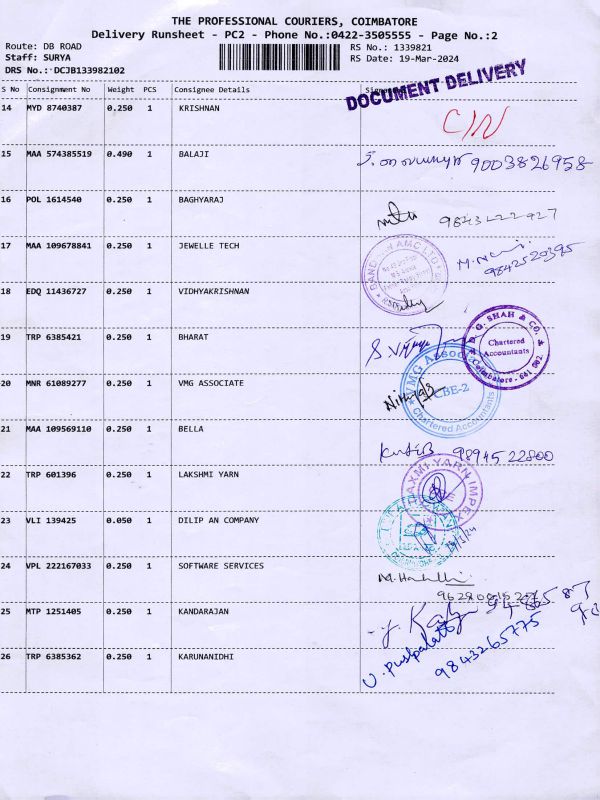 THE PROFESSIONAL COURIERS, COIMBATORE
Delivery Runsheet - PC2 - Phone No.:0422-3505555 - Page No.:2
Route: DB ROAD
RS No.: 1339821
Staff: SURYA
RS Date: 19-Mar-2024
DRS No.: DCJB133982102
DOCUMENT DELIVERY
S No Consignment No Weight PCS Consignee Details
14 MYD 8740387 0.250 1 KRISHNAN
C/N
15 MAA 574385519 0.490 1 BALAJI
9003826958
16 POL 1614540 0.250 1 BAGHYARAJ
17 MAA 109678841 0.250 1 JEWELLE TECH
9842520395
18 EDQ 11436727 0.250 1 VIDHYAKRISHNAN
19 TRP 6385421 0.250 1 BHARAT
G. SHAH & CO.
Chartered
Accountants
Coimbatore - 641 002.
20 MNR 61089277 0.250 1 VMG ASSOCIATE
VMG Associates
CBE-2
Chartered Accountants
21 MAA 109569110 0.250 1 BELLA
9894522800
22 TRP 601396 0.250 1 LAKSHMI YARN
LAXMI YARN IMPEX
23 VLI 139425 0.050 1 DILIP AN COMPANY
24 VPL 222167033 0.250 1 SOFTWARE SERVICES
25 MTP 1251405 0.250 1 KANDARAJAN
26 TRP 6385362 0.250 1 KARUNANIDHI
9843265775